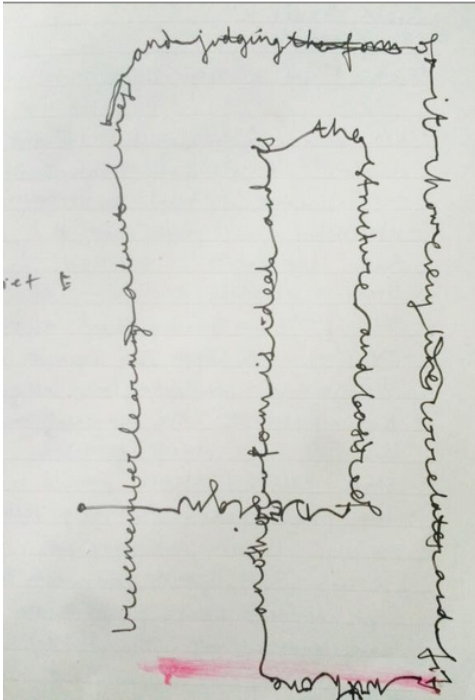 I remember learning about lines
and judging the form of
it how every line correlates and fit
with one
another form is ideas and is
the
structure and basis of